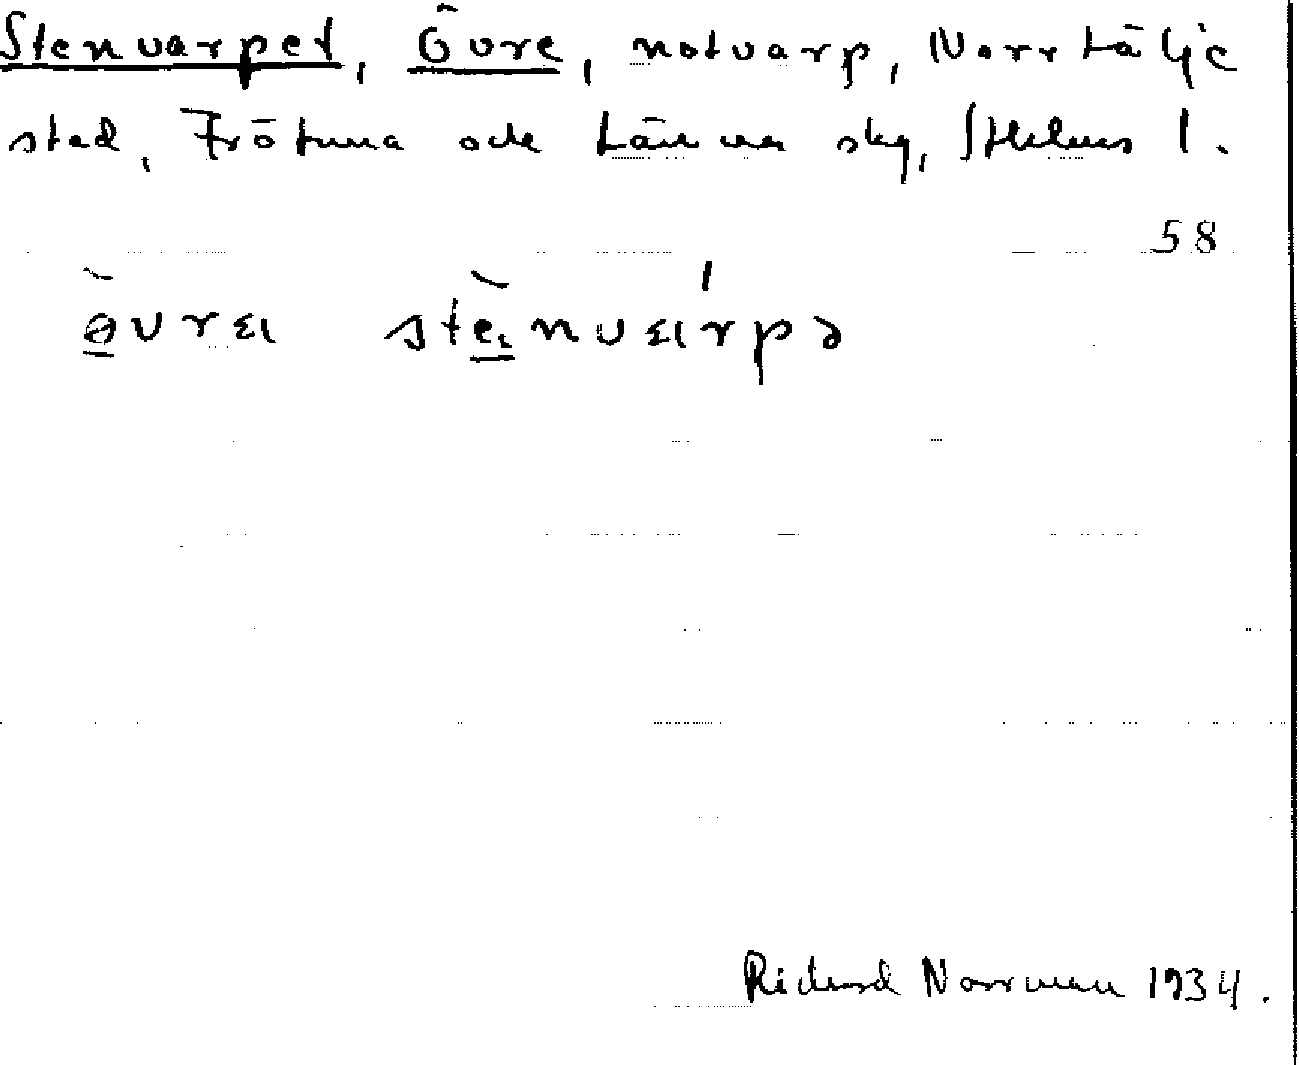 Stenvarpet, Övre, notvarp, Norrtälje
stad, Frötuna och Länna skg, Sthlms l.
58
Richard Norrman 1934.